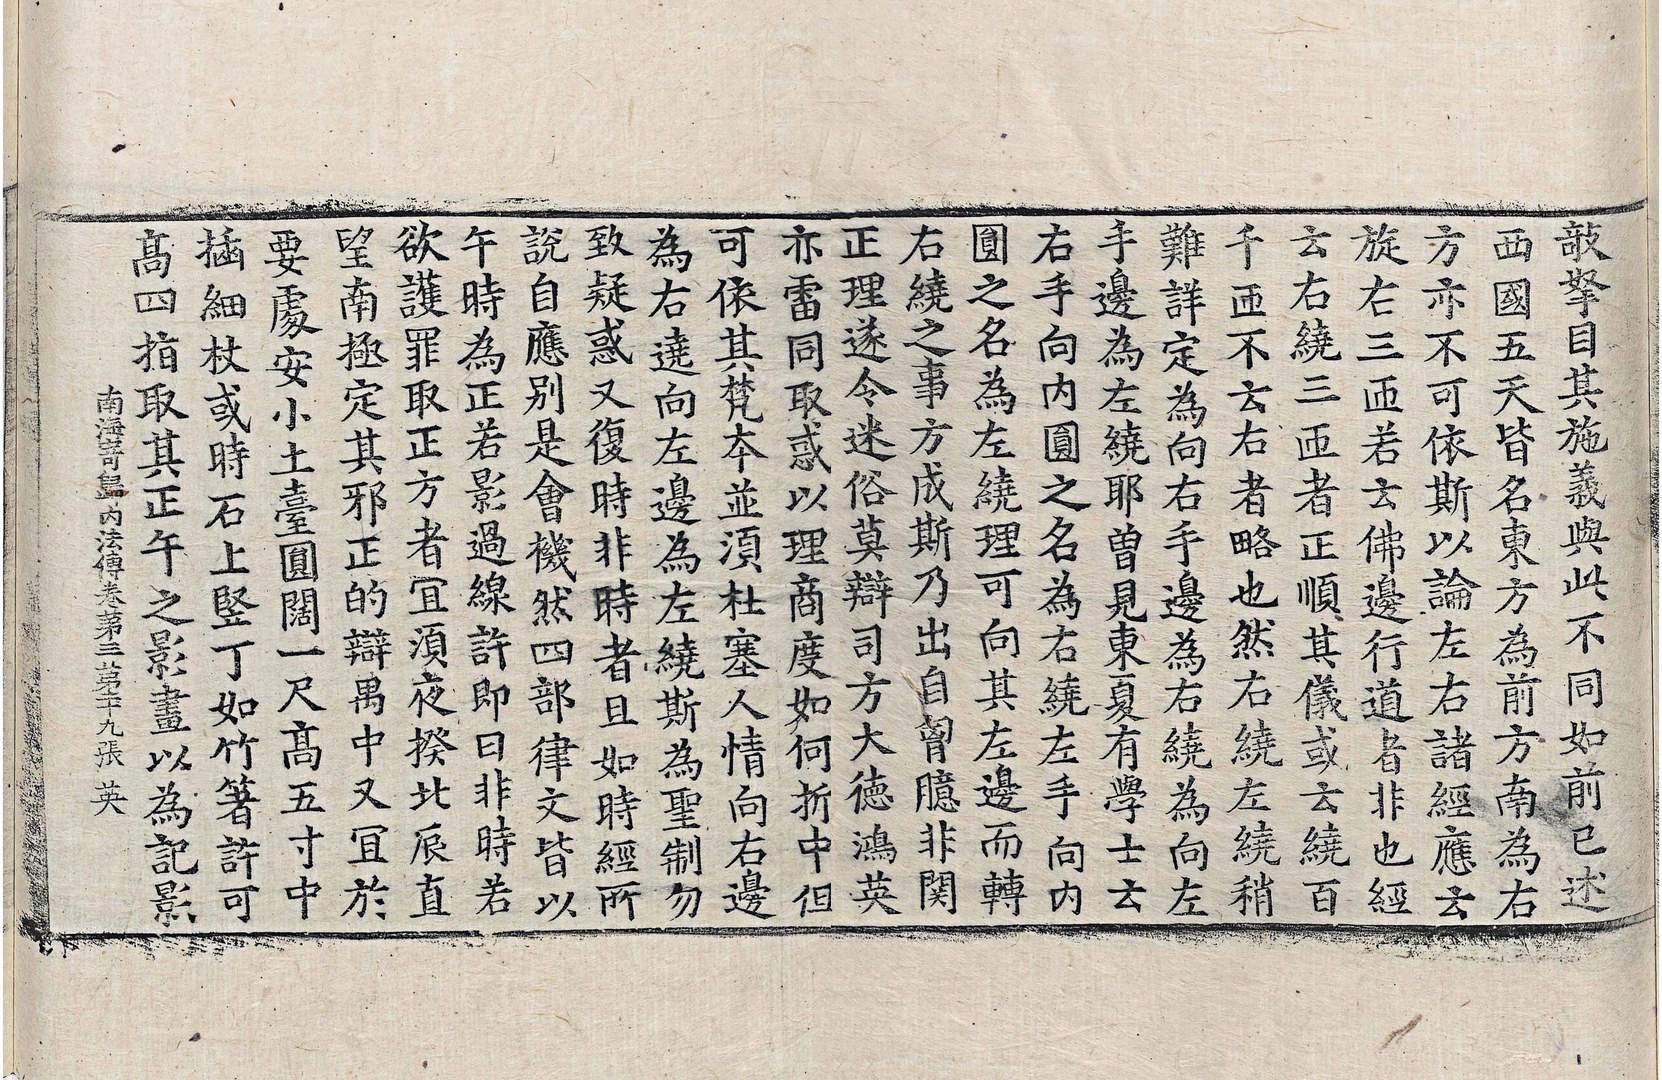 敲拏目其施義與此不同如前已述
西國五天皆名東方為前方南為右
方亦不可依斯以論左右諸經應云
旋右三匝若云佛邊行道者非也經
云右繞三匝者正順其儀或云繞百
千匝不云右者略也然右繞左繞稍
難詳定為向右手邊為右繞為向左
手邊為左繞耶曾見東夏有學士云
右手向內圓之名為右繞左手向內
圓之名為左繞理可向其左邊而轉
右繞之事方成斯乃出自胷臆非関
正理遂令迷俗莫辯司方大德鴻英
亦雷同取惑以理商度如何折中但
可依其梵夲並湏杜塞人情向右邊
為右遶向左邊為左繞斯為聖制勿
致疑惑又復時非時者且如時經所
說自應別是會機然四部律文皆以
午時為正若影過線許即曰非時若
欲護罪取正方者冝湏夜揆北辰直
望南極定其邪正的辯禺中又冝於
要處安小土臺圓闊一尺髙五寸中
插細杖或時石上竪丁如竹箸許可
髙四指取其正午之影畫以為記影
南海寄歸內法傳卷第三 第十九張 英